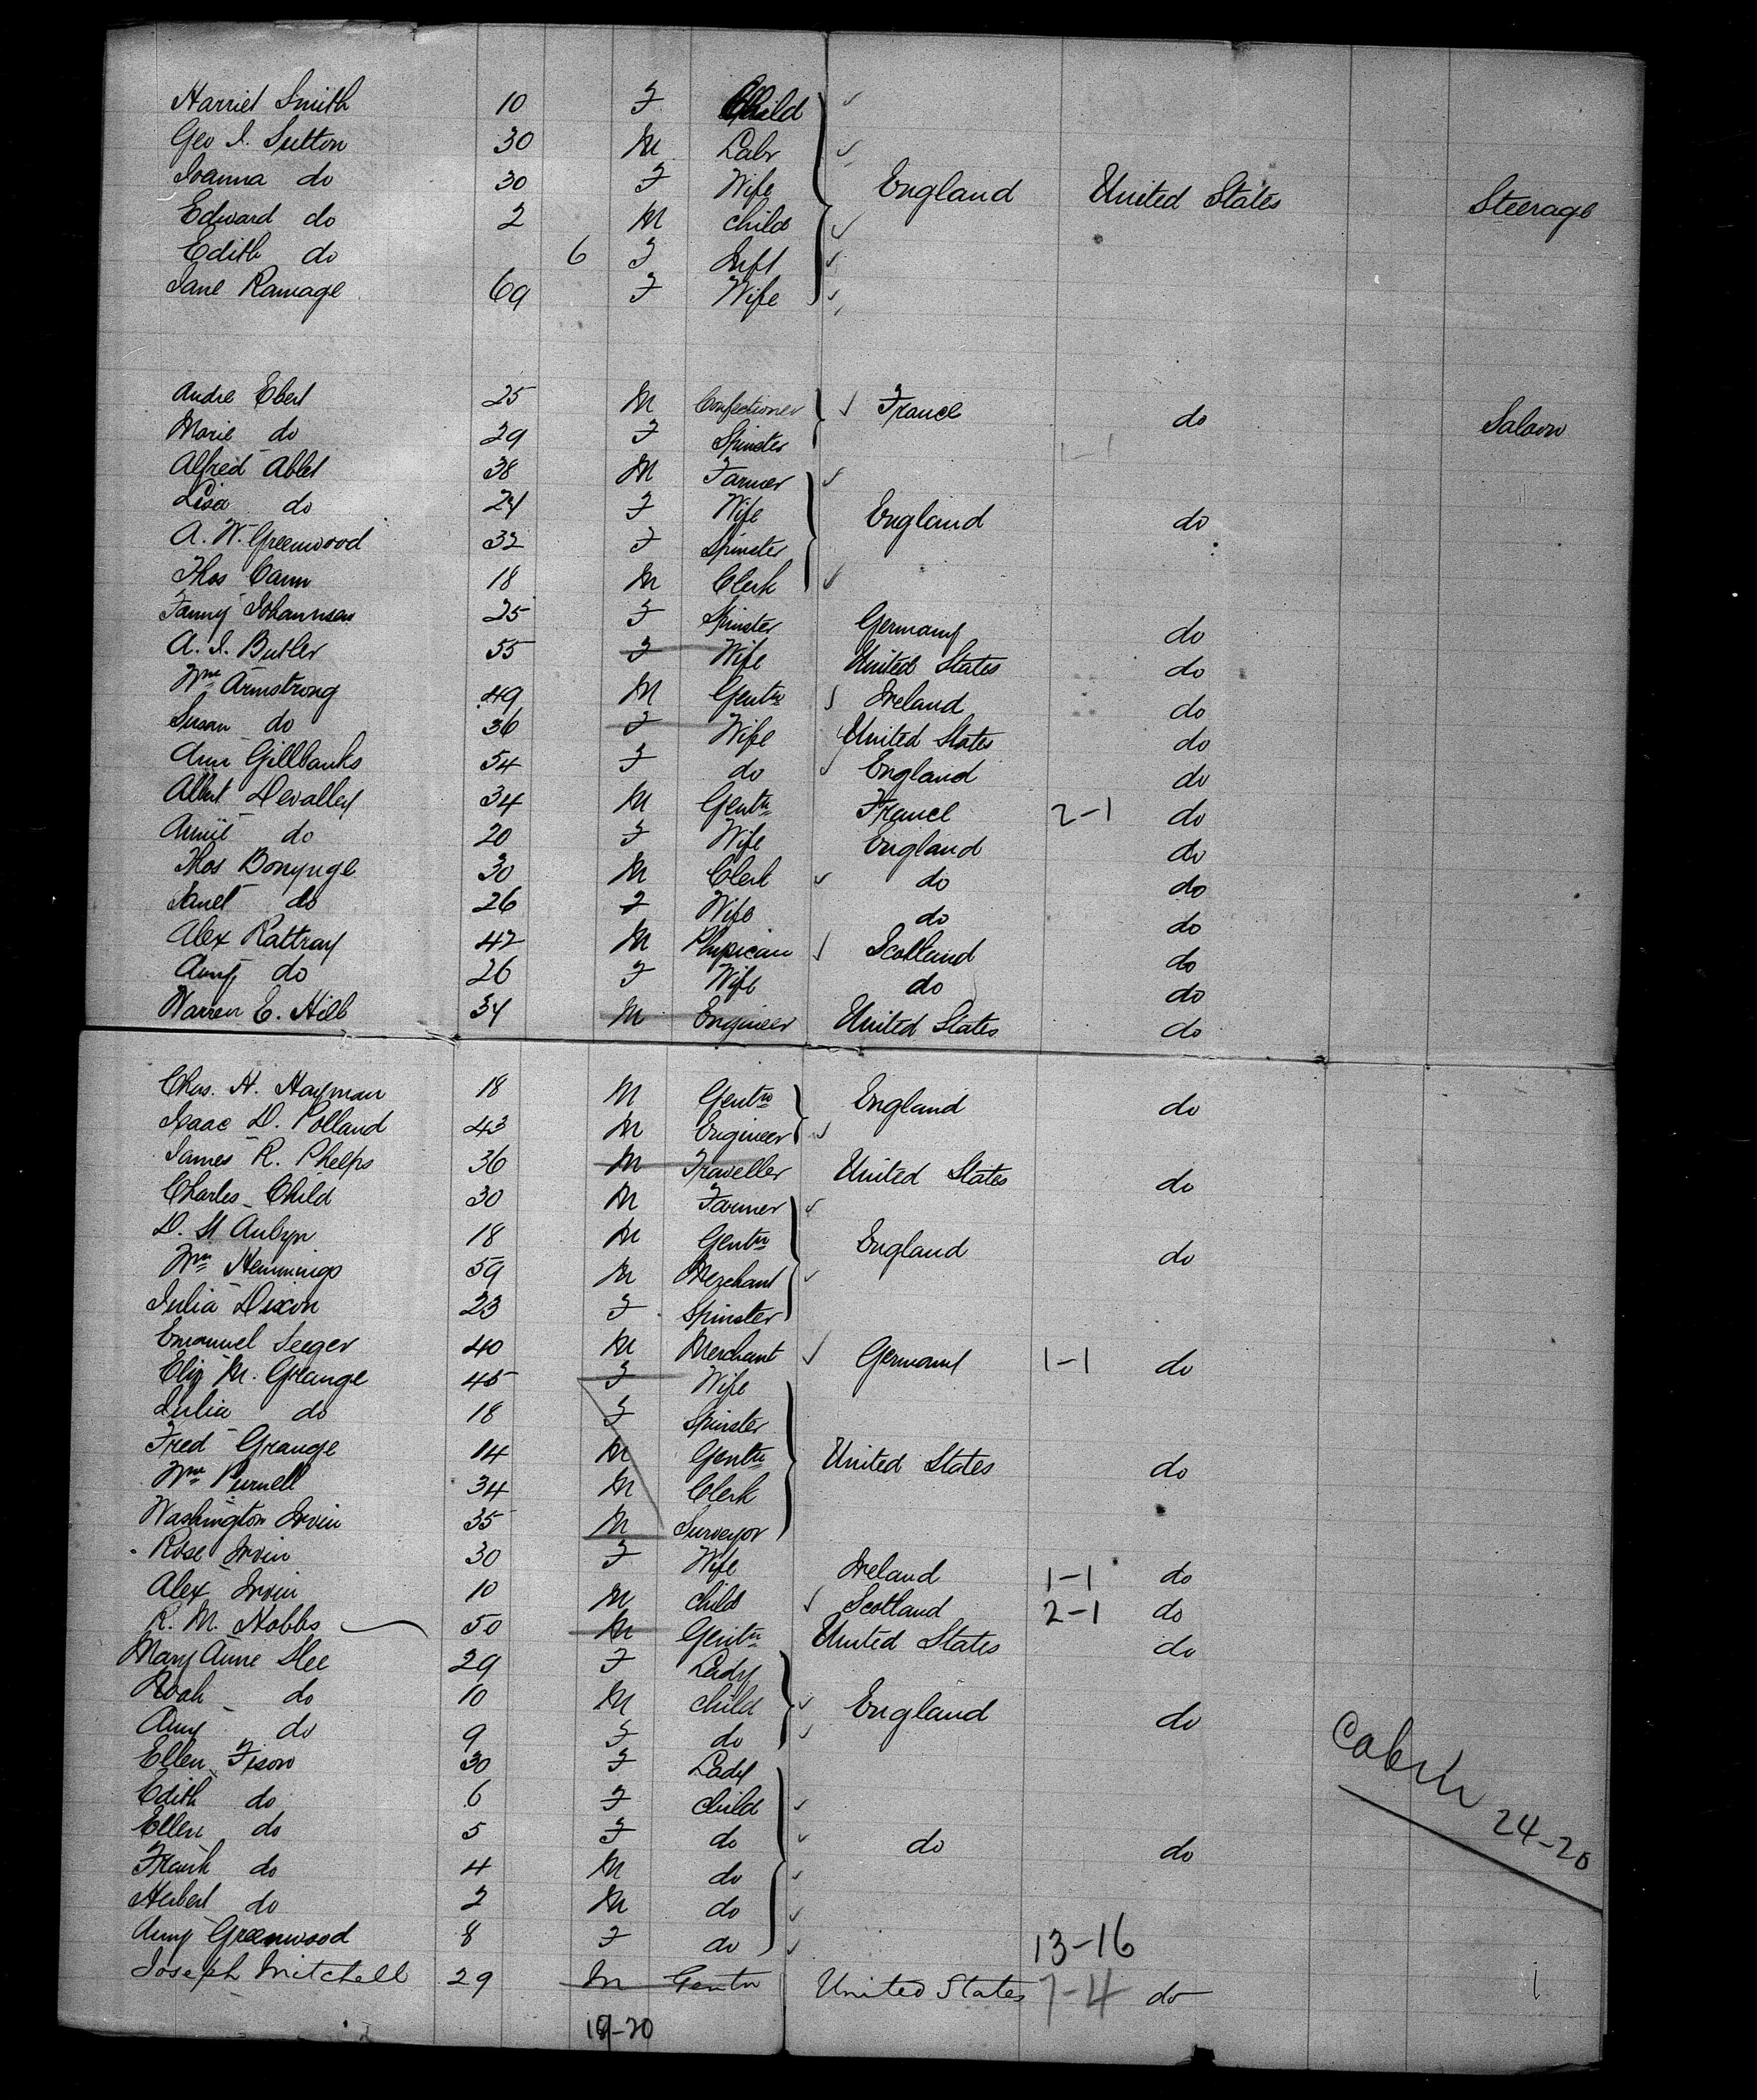 Harriet Smith 10 F Child
Geo J. Sutton 30 M Labr
Joanna do 30 F Wife England United States Steerage
Edward do 2 M Child
Edith do 6 F Inft
Jane Ramage 69 F Wife
Andre Ebert 25 M Confectioner France do Saloon
Marie do 29 F Spinster
Alfred Ablet 38 M Farmer
Lisa do 24 F Wife England do
A. W. Greenwood 32 F Spinster
Thos Cann 18 M Clerk
Fanny Johannsen 25 F Spinster Germany do
A. J. Butler 55 F Wife United States do
Wm Armstrong 49 M Gentn Ireland do
Susan do 36 F Wife United States do
Ann Gillbanks 54 F do England do
Albert Devalley 34 M Gentn France 2-1 do
Annie do 20 F Wife England do
Thos Bonynge 30 M Clerk do do
Janet do 26 F Wife do do
Alex Rattray 42 M Physician Scotland do
Amy do 26 F Wife do do
Warren E. Hill 34 M Engineer United States do
Chas. H. Hayman 18 M Gentn England do
Isaac D. Polland 43 M Engineer
James R. Phelps 36 M Traveller United States do
Charles Child 30 M Farmer
D. St Aubyn 18 M Gentn England do
Wm Hemmings 59 M Merchant
Julia Dixon 23 F Spinster
Emanuel Seeger 40 M Merchant Germany 1-1 do
Eliz M. Grange 45 F Wife
Julia do 18 F Spinster
Fred Grange 14 M Gentn United States do
Wm Purnell 34 M Clerk
Washington Irvin 35 M Surveyor
Rose Irvin 30 F Wife Ireland 1-1 do
Alex Irvin 10 M Child Scotland 2-1 do
R. M. Hobbs 50 M Gentn United States do
Mary Anne Slee 29 F Lady
Noah do 10 M Child England do
Amy do 9 F do
Ellen Fison 30 F Lady
Edith do 6 F Child
Ellen do 5 F do do do
Frank do 4 M do
Herbert do 2 M do
Amy Greenwood 8 F do
Joseph Mitchell 29 M Gentn United States 7-4 do
Cabin 24-20
13-16
19-20